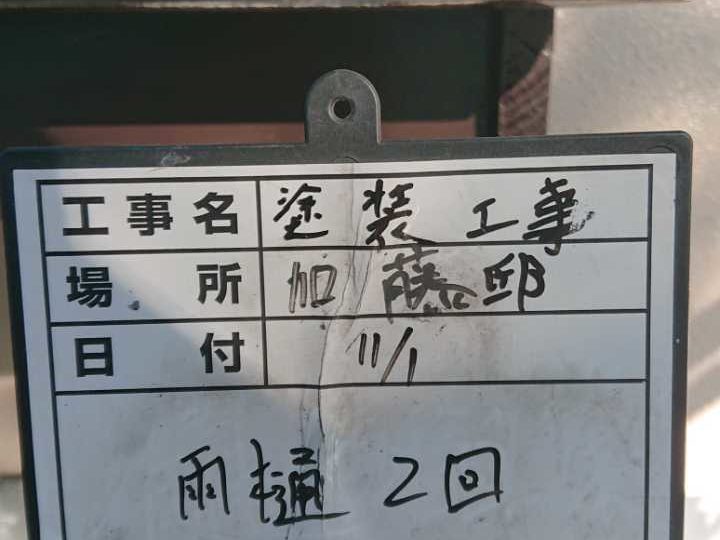 工事名 塗装工事
場所 加藤邸
日付 11/1
雨樋 2回